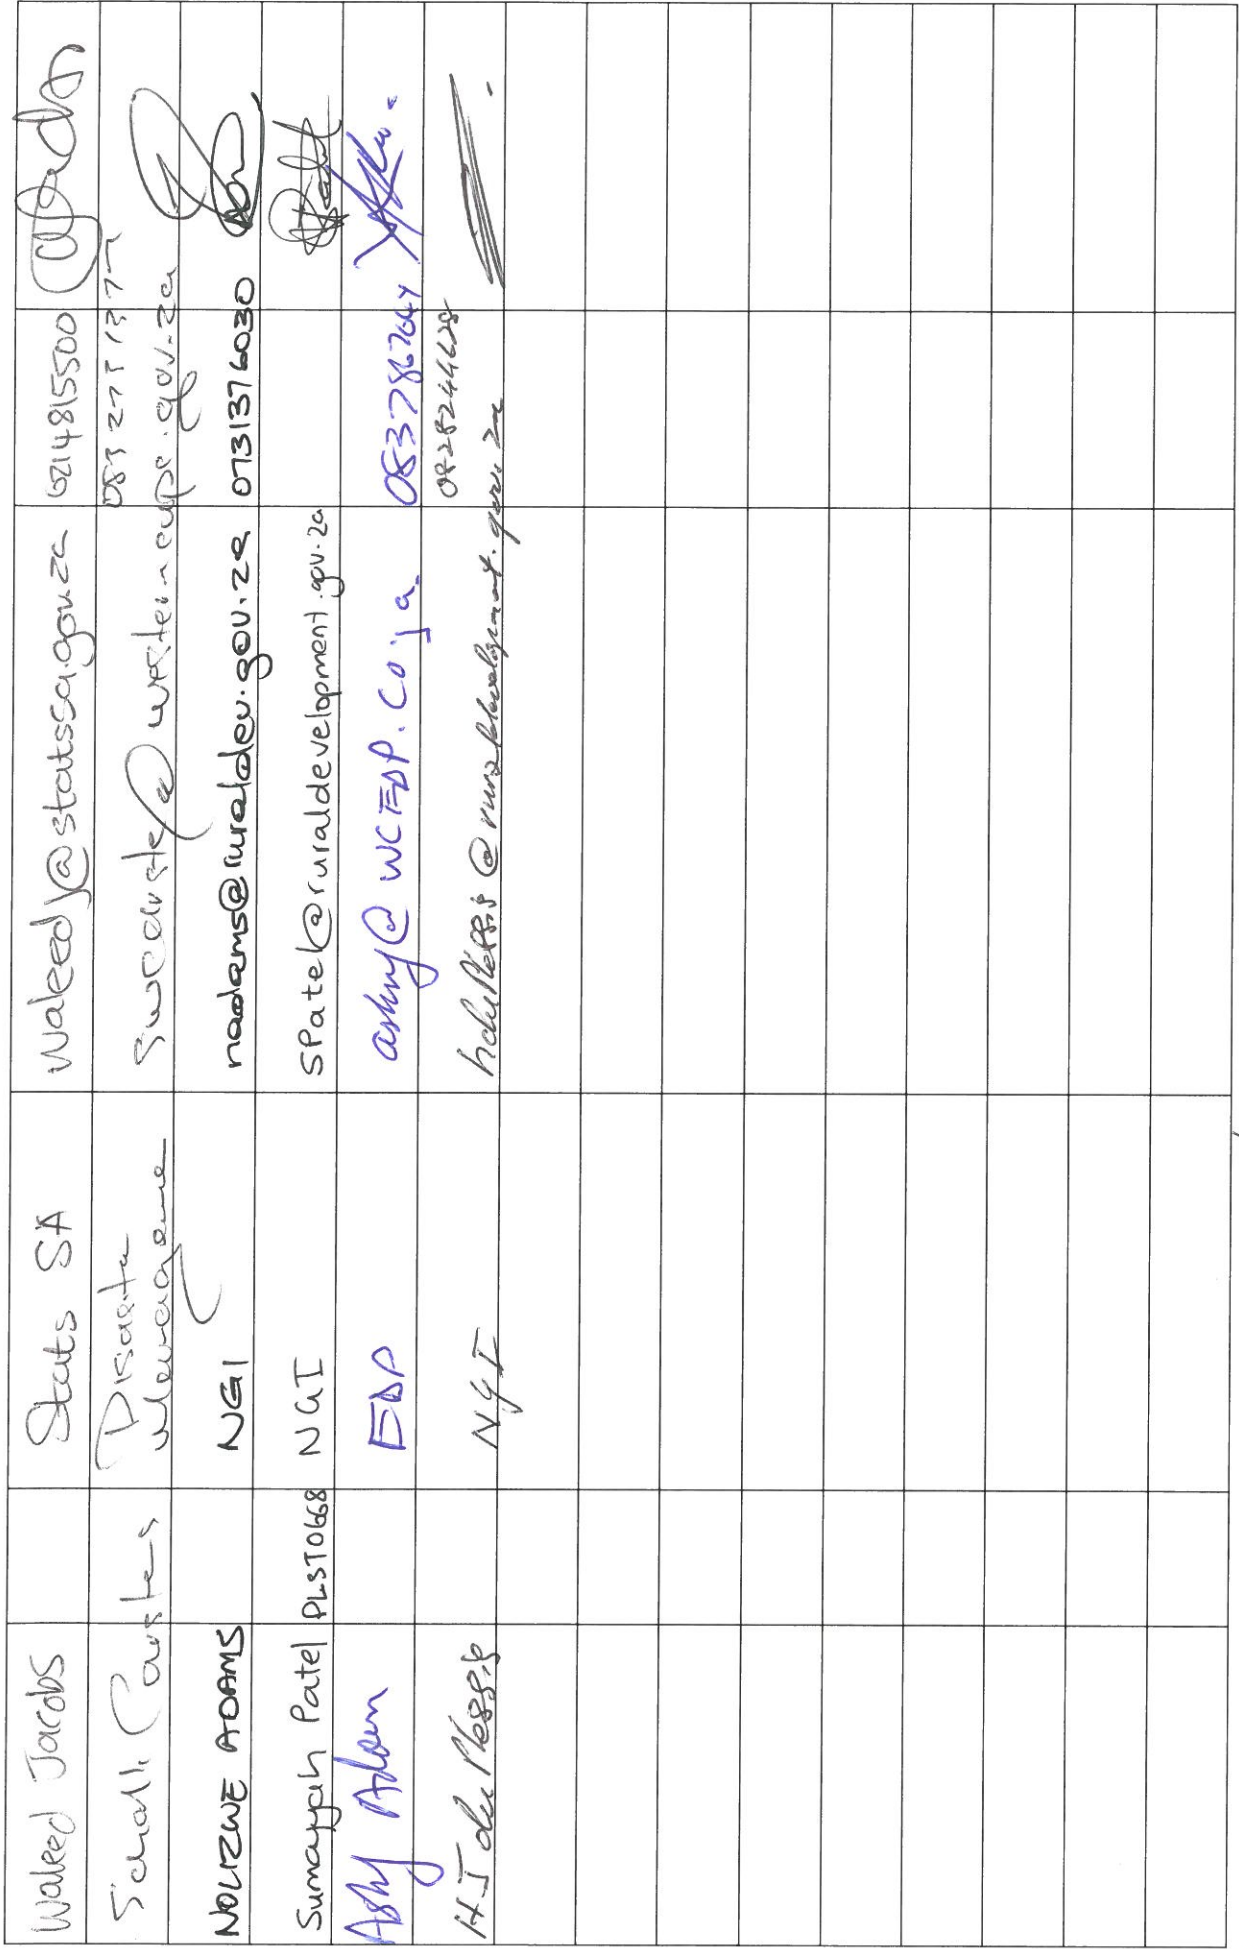 Waleed Jacobs Stats SA waleedj@statssa.gov.za 0214815500
Schalk Carstens Disaster
NOLIZWE ADAMS NGI nadams@ruraldev.gov.za 0731376030
Sumayyah Patel PLST0668 NGI SPatel@ruraldevelopment.gov.za
Ashy Adam EDP ashy@WCEDP.Co.za 0837867064
H.J du Plessis NGI hduplessis@ruraldevelopment.gov.za